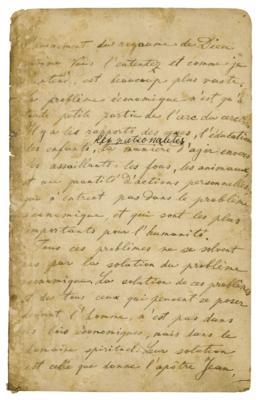 l'avènement du royaume de Dieu
comme vous l'entendez et comme je
l'entends, est beaucoup plus vaste.
Le problème économique n'est qu'une
toute petite partie de l'arc du cercle.
Il y a les rapports des gens, l'éducation
les nationalités
des enfants, la manière d'agir envers
les assaillants, les fous, les animaux
et une quantité d'actions personnelles,
qui n'entrent pas dans le problème
économique, et qui sont les plus
importants pour l'humanité.
Tous ces problèmes ne se solvent
pas par la solution du problème
économique. La solution de ces problèmes
et des tous ceux qui peuvent se poser
devant l'homme, n'est pas dans
les lois économiques, mais dans le
domaine spirituel. Leur solution
est celle que donne l'apôtre Jean,